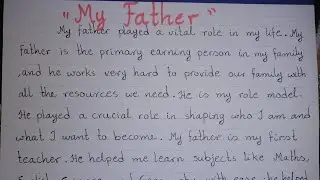 "My Father"
My father played a vital role in my life.. My
father is the primary earning person in my family
,and he works very hard to provide our family with
all the resources we need. He is my role model.
He played a crucial role in shaping who I am and
what I want to become.. My father is my first
teacher. He helped me learn subjects like Maths,